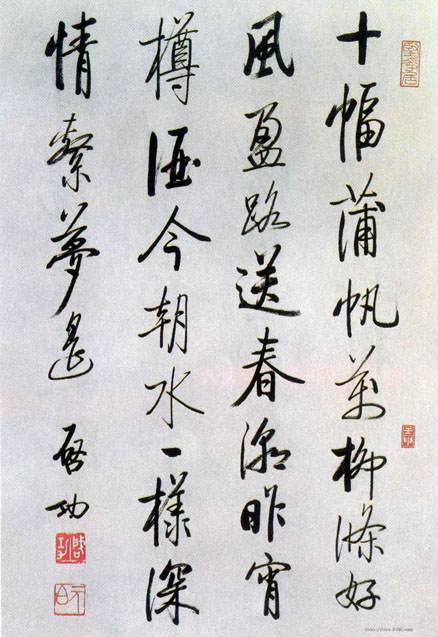 十幅蒲帆萬柳條好
風盈路送春潮昨宵
樽酒今朝水一樣深
情繫夢遙
啓功